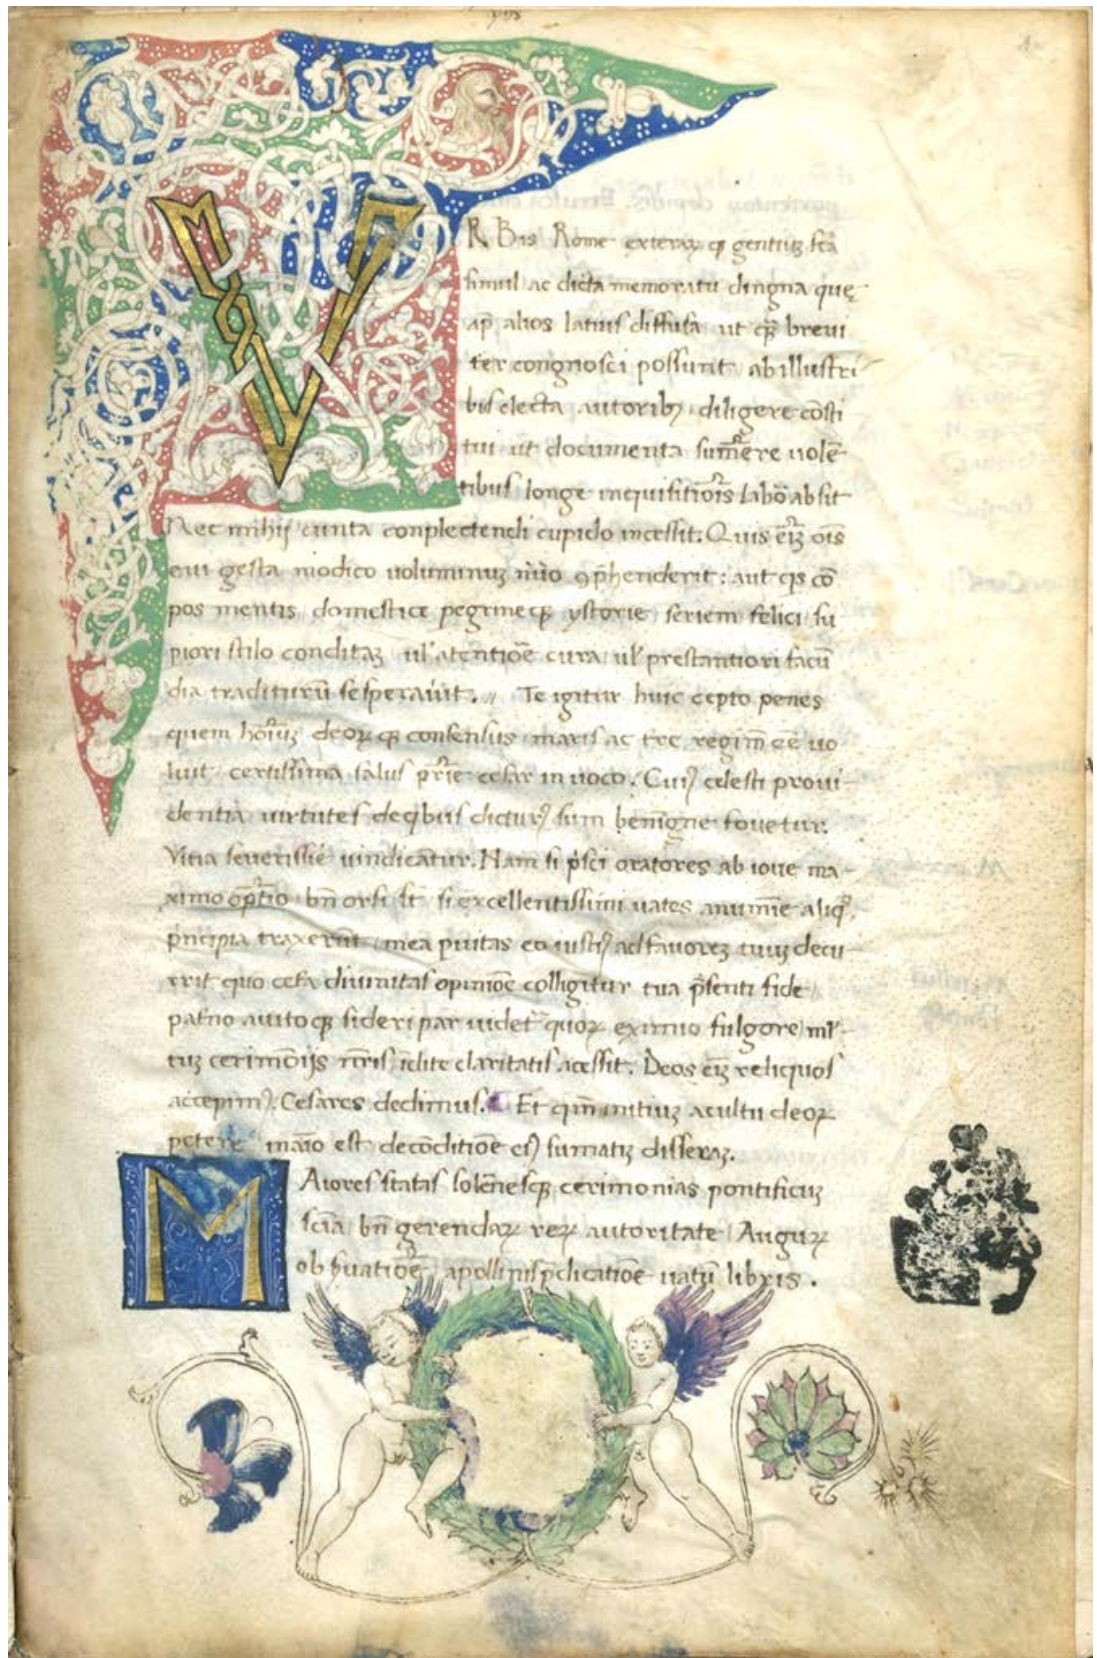 V RBis Rome exterarꝝ qꝫ gentiuꝫ fcã
simul ac dicta memoratu dingna quę
ap̃ alios latius diffusa ut qꝫ brevi
ter congnosci possunt ab illustri
bus electa autoribꝫ diligere cõsti
tui ut documenta sumere uolẽ
tibus longe inquisitiõis labõ absit
Nec mihij cunta conplectendi cupido incessit. Quis eĩꝫ oĩs
eui gesta modico uoluminuꝫ nũo ꝯp̃henderit: aut qis cõ
pos mentis domestice pegrine qꝫ ystorie seriem felici su
piori stilo conditaꝫ ul' atentiõe cura ul' prestantiori facũ
dia traditurũ se speraũit. // Te igitur huic cepto penes
quem hoĩuꝫ deoꝝ qꝫ consensus maris ac tre regim̃ eẽ uo
luit certissima salus pr̃ie cesar in uoco. Cuiꝰ celesti provi
dentia uirtutes de qibus dicturꝰ sum benigne fouetur.
Vitia seuerissĩe uindicãtur. Nam si p̃sci oratores ab ioue ma
ximo opt̃io bñ orsi st̃ si excellentissimi uates anumĩe aliqꝰ
p̃ncipia traxerũt mea puitas eo iustiꝰ ad fauoreꝫ tuuꝫ decu
rrit quo cet̃a diuinitas opiniõe colligitur tua p̃senti fide
pat̃no auito qꝫ sideri par uidet̃ quoꝝ eximio fulgore ml'
tuꝫ cerimõijs nr̃is ĩclite claritatis acessit. Deos eĩꝫ reliquos
accepimꝰ. Cesares dedimus. Et qm̃ initiuꝫ acultu deoꝝ
petere ĩ aĩo est de cõditiõe eiꝰ sumatiꝫ disseraꝫ.
M Aiores statas solẽnes qꝫ cerimonias pontificuꝫ
scĩa bñ gerendaꝝ reꝝ autoritate Auguꝝ
obs̃uatiõe apollinis p̃dicatiõe uatũ libris.